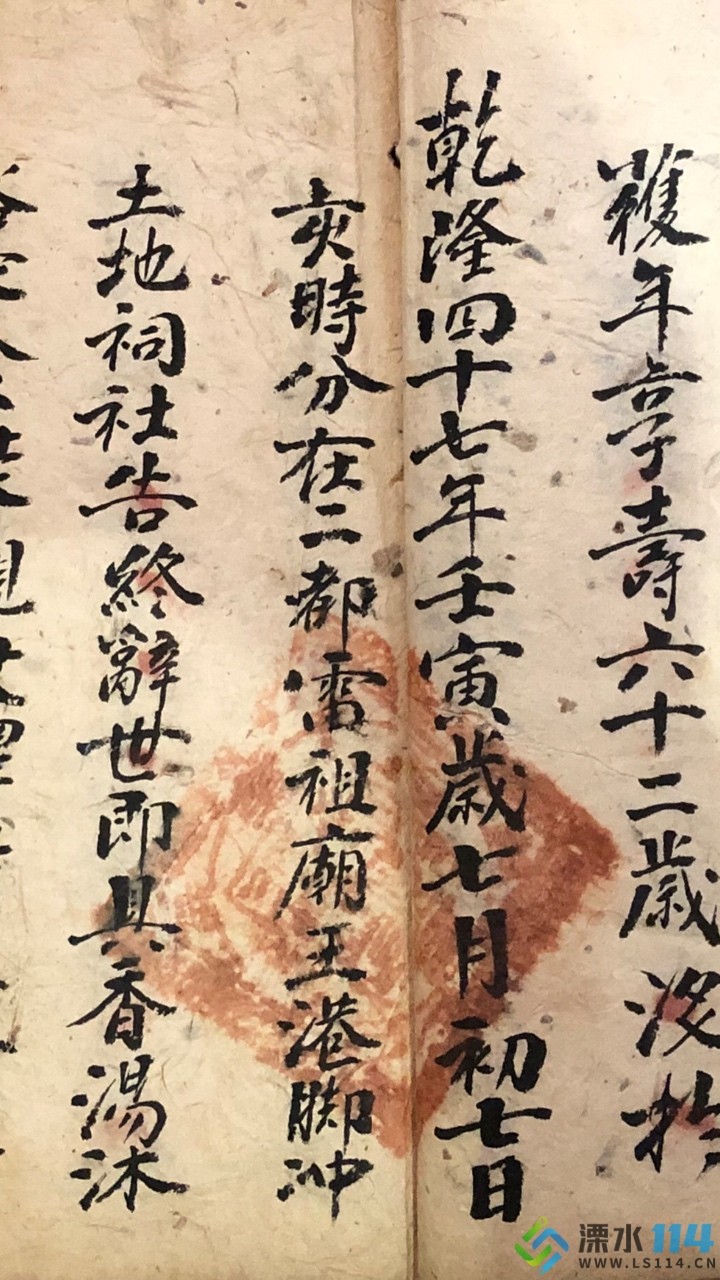 年享壽六十二歲歿於
乾隆四十七年壬寅歲七月初七日
亥時分在二都雷祖廟王港脚冲
土地祠社告終辭世即具香湯沐
溧水114
WWW.LS114.CN